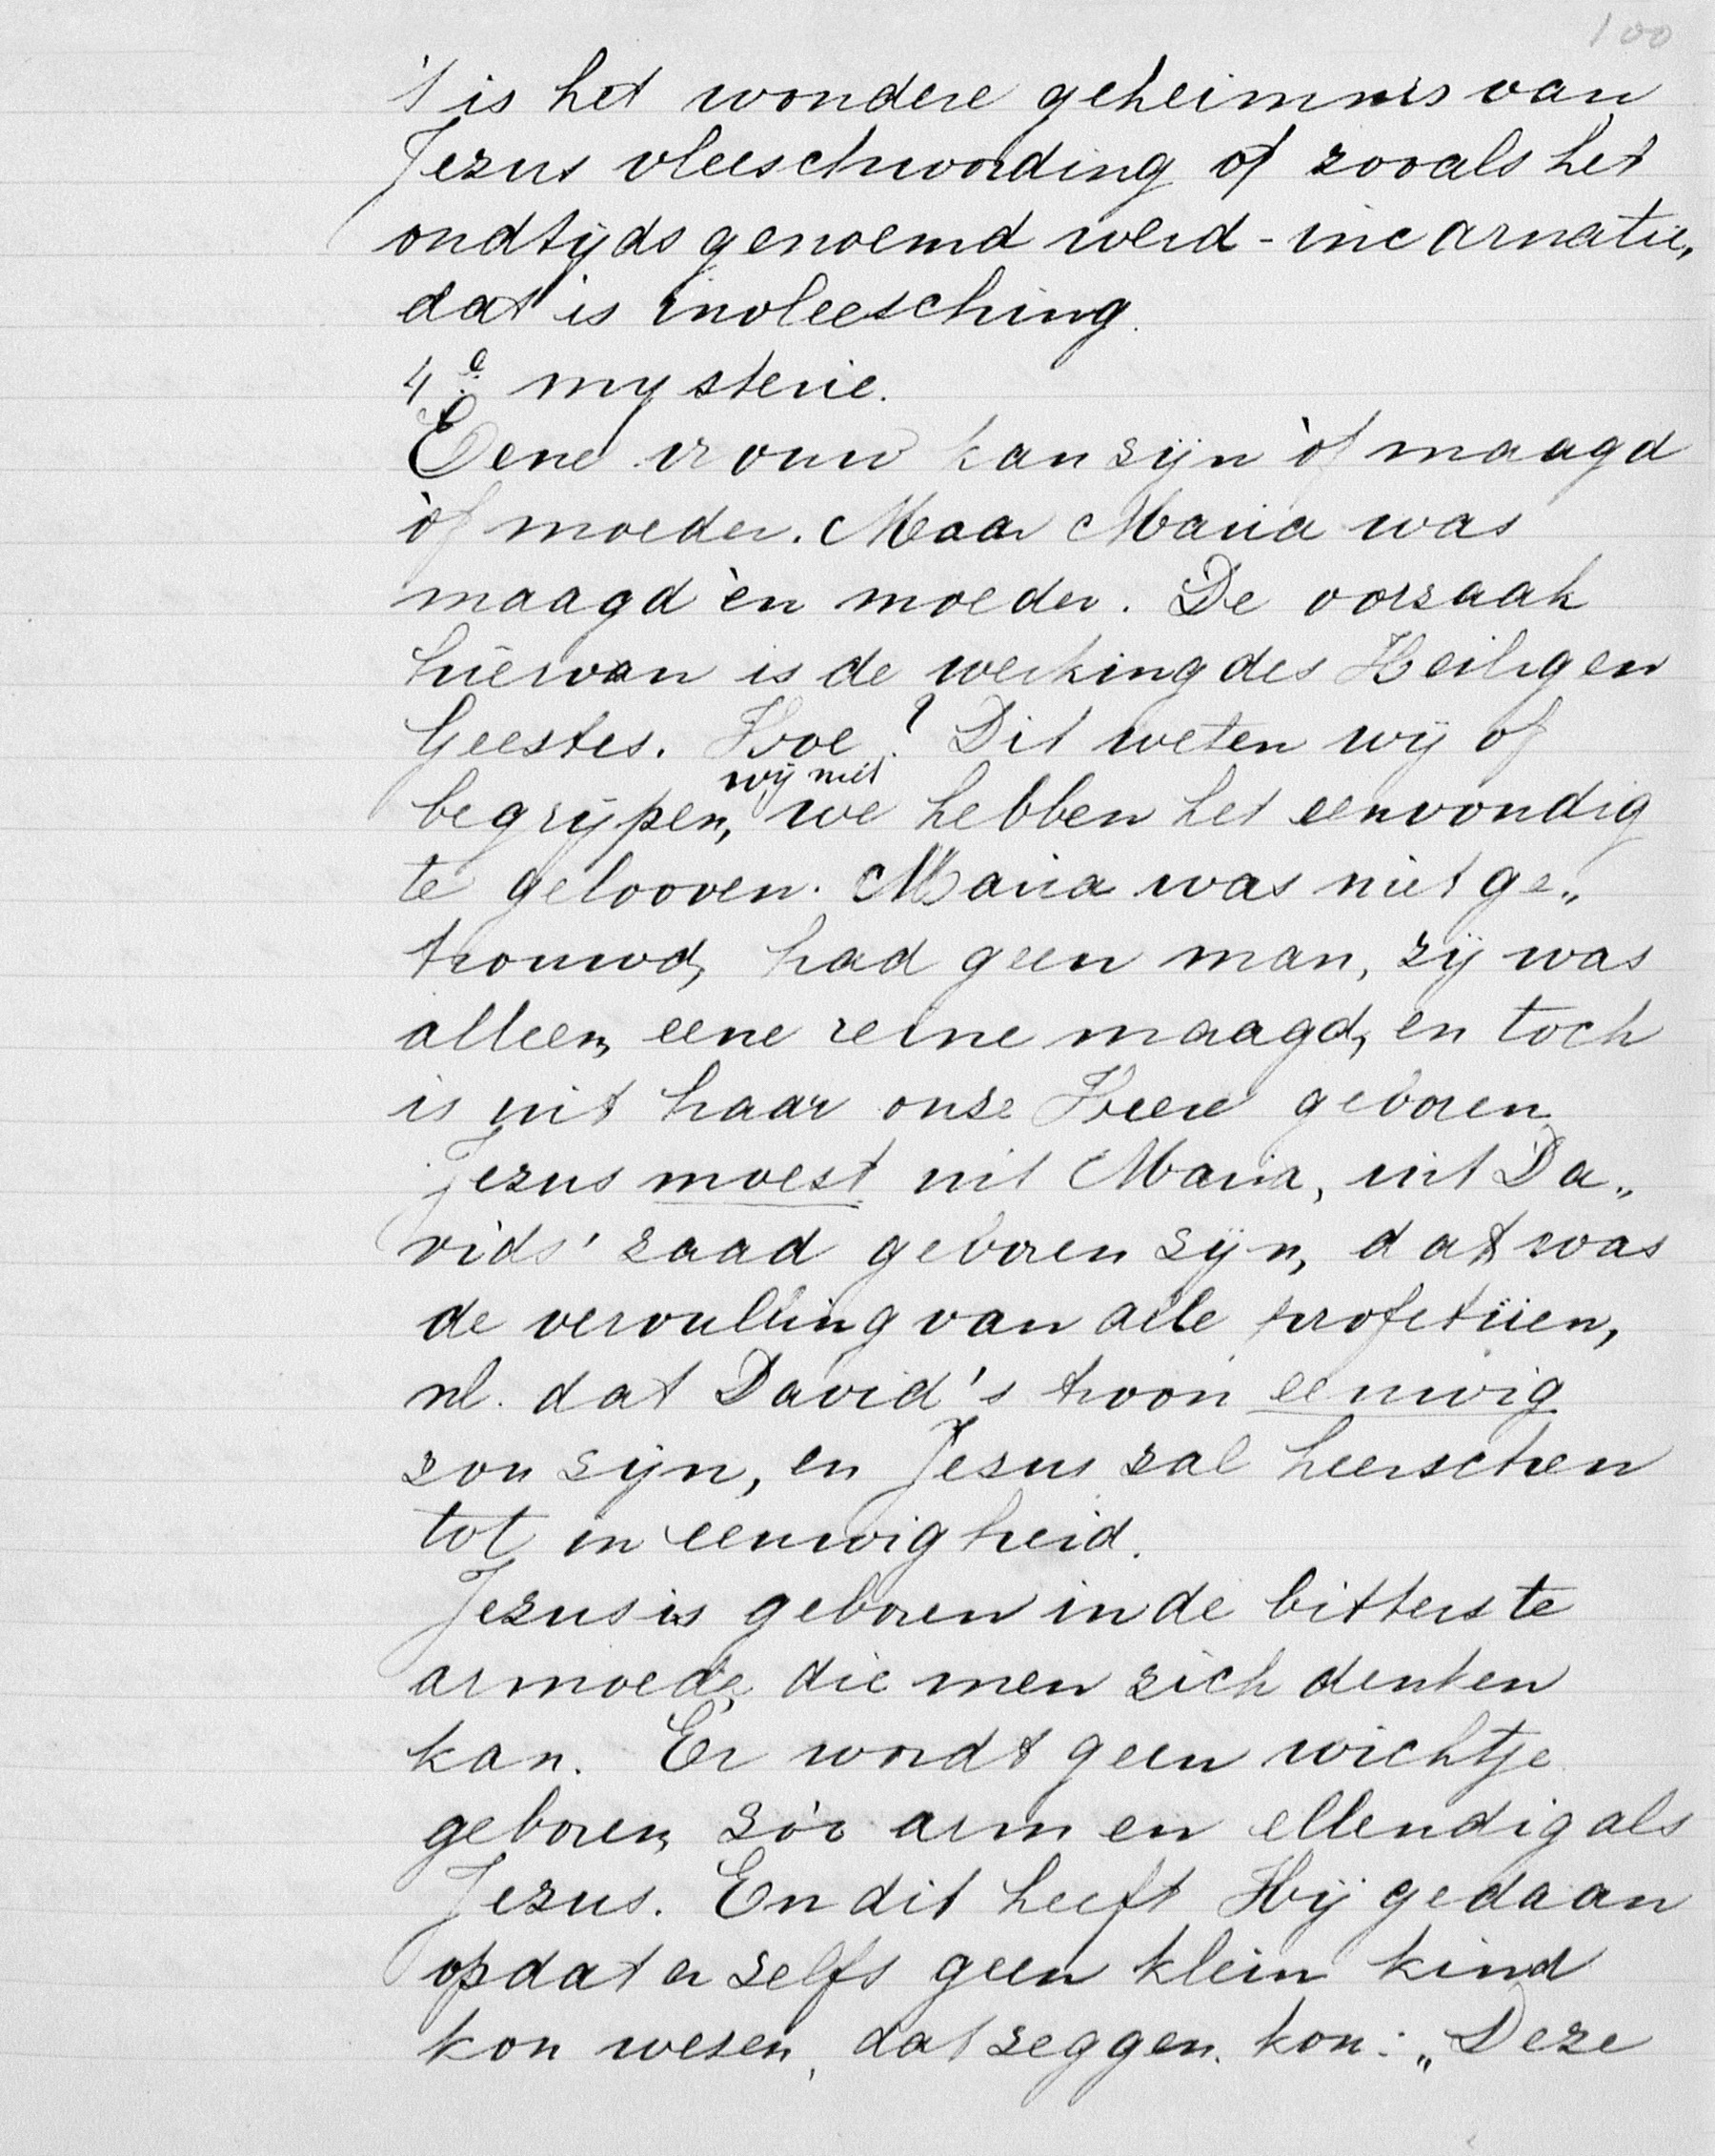 100
't is het wondere geheimnis van
Jezus vleeschwording of zooals het
oudtijds genoemd werd - incarnatie,
dat is invleesching.
4e mysterie.
Eene vrouw kan zijn òf maagd
òf moeder. Maar Maria was
maagd èn moeder. De oorzaak
hiervan is de werking des Heiligen
Geestes. Hoe? Dit weten wij of
wij niet
begrijpen, we hebben het eenvoudig
te gelooven. Maria was niet ge„
trouwd, had geen man, zij was
alleen, eene reine maagd, en toch
is uit haar onze Heere geboren.
Jezus moest uit Maria, uit Da„
vids' zaad geboren zijn, dat was
de vervulling van alle profetiën,
nl. dat David's troon eeuwig
zou zijn, en Jezus zal heerschen
tot in eeuwigheid.
Jezus is geboren in de bitterste
armoede, die men zich denken
kan. Er wordt geen wichtje
geboren, zóó arm en ellendig als
Jezus. En dit heeft Hij gedaan
opdat er zelfs geen klein kind
kon wezen, dat zeggen kon: „Deze